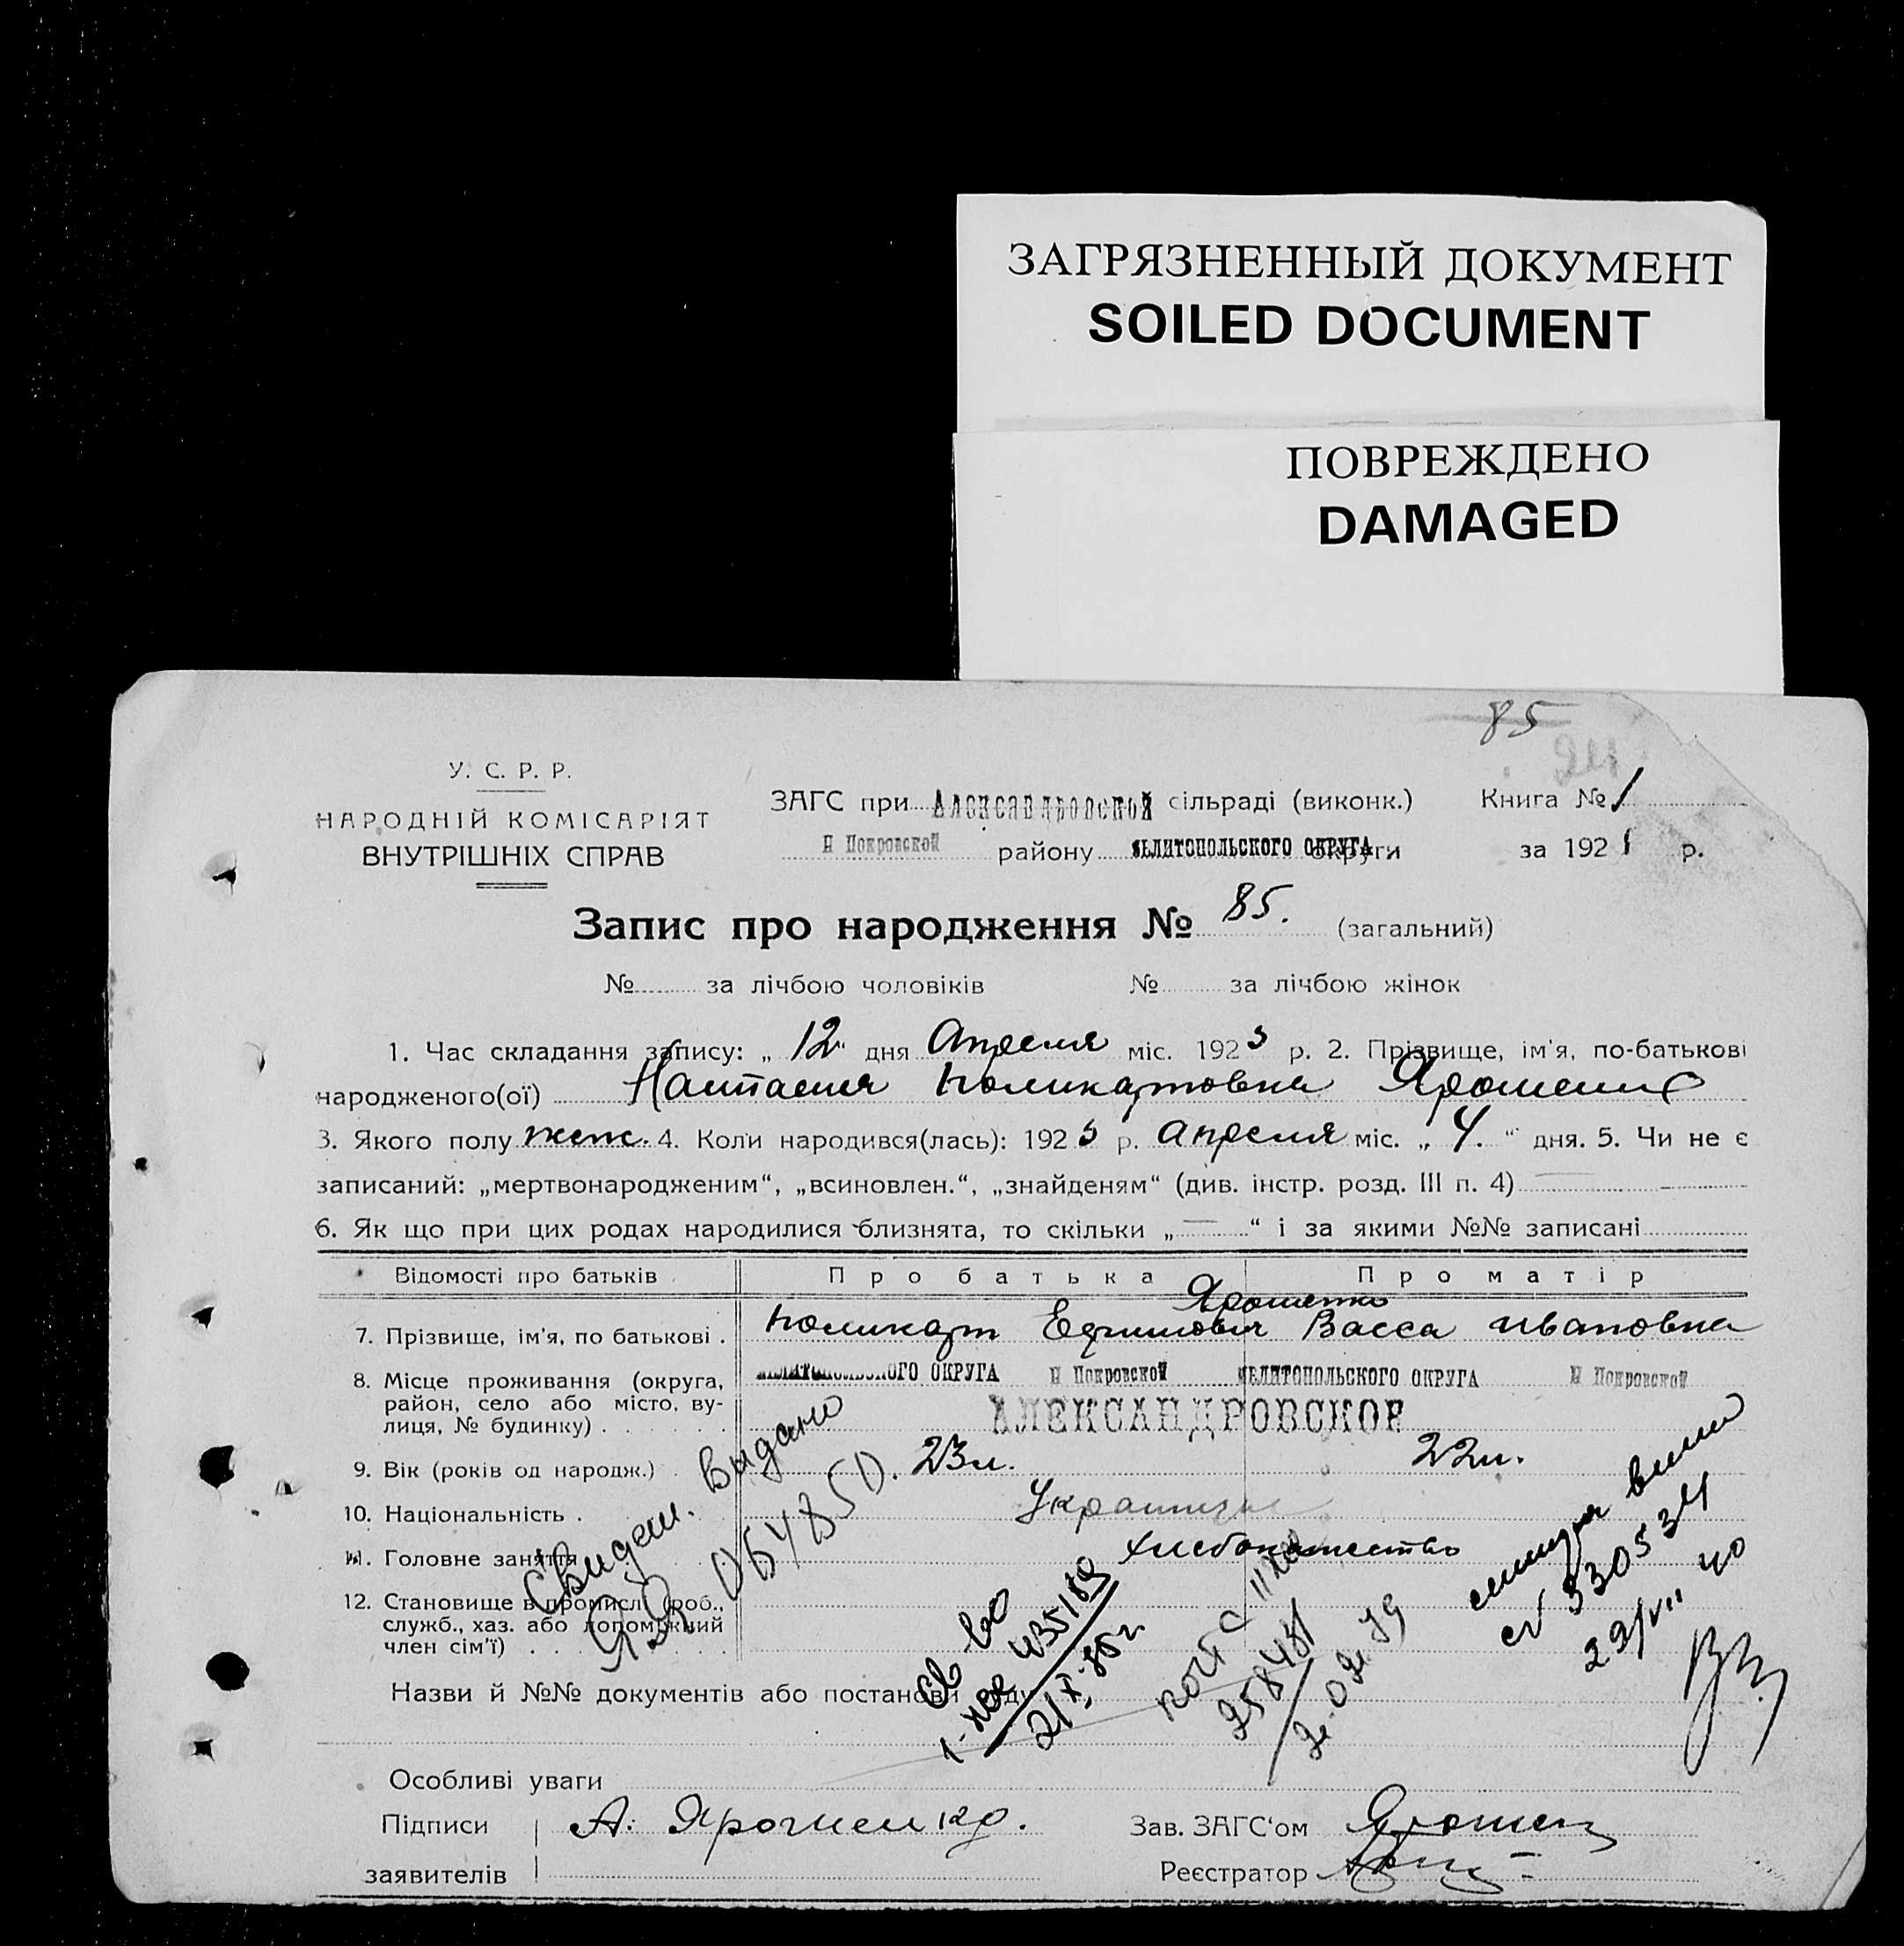 ЗАГРЯЗНЕННЫЙ ДОКУМЕНТ
SOILED DOCUMENT
ПОВРЕЖДЕНО
DAMAGED
85
24
У. С. Р. Р.
НАРОДНІЙ КОМІСАРІЯТ
ВНУТРІШНІХ СПРАВ
ЗАГС при Александровской сільраді (виконк.) Книга № 1
Н Покровской району МЕЛИТОПОЛЬСКОГО ОКРУГА округи за 192 р.
Запис про народження № 85. (загальний)
№ за лічбою чоловіків № за лічбою жінок
1. Час складання запису: „ 12 " дня Апреля міс. 1923 р. 2. Прізвище, ім'я, по-батькові
народженого(ої) Настасия Поликарповна Ярошенко
3. Якого полу жен. 4. Коли народився(лась): 1923 р. апреля міс. „ 4. " дня. 5. Чи не є
записаний: „мертвонародженим“, „всиновлен.“, „знайденям“ (див. інстр. розд. III п. 4)
6. Як що при цих родах народилися близнята, то скільки „ — “ і за якими №№ записані
Відомості про батьків Про батька Про матір
Ярошенко
7. Прізвище, ім'я, по батькові . Поликарп Ефимович Васса Ивановна
8. Місце проживання (округа, район, село або місто, вулиця, № будинку) . МЕЛИТОПОЛЬСКОГО ОКРУГА Н Покровской МЕЛИТОПОЛЬСКОГО ОКРУГА Н Покровской
АЛЕКСАНДРОВСКОЕ
9. Вік (років од народж.) . 23 л. 22 л.
10. Національність .
11. Головне заняття хлебопашество
12. Становище в промислі (роб.,
служб., хаз. або допоміжний
член сім'ї) .
Свидет. Видано
ЯЭ 064850.
Св во
435189
21/X
258431
530534
29/VII 40
Назви й №№ документів або постанови суду
Особливі уваги
Підписи заявителів А. Ярошенко.
Зав. ЗАГС‘ом Ярошен
Реєстратор